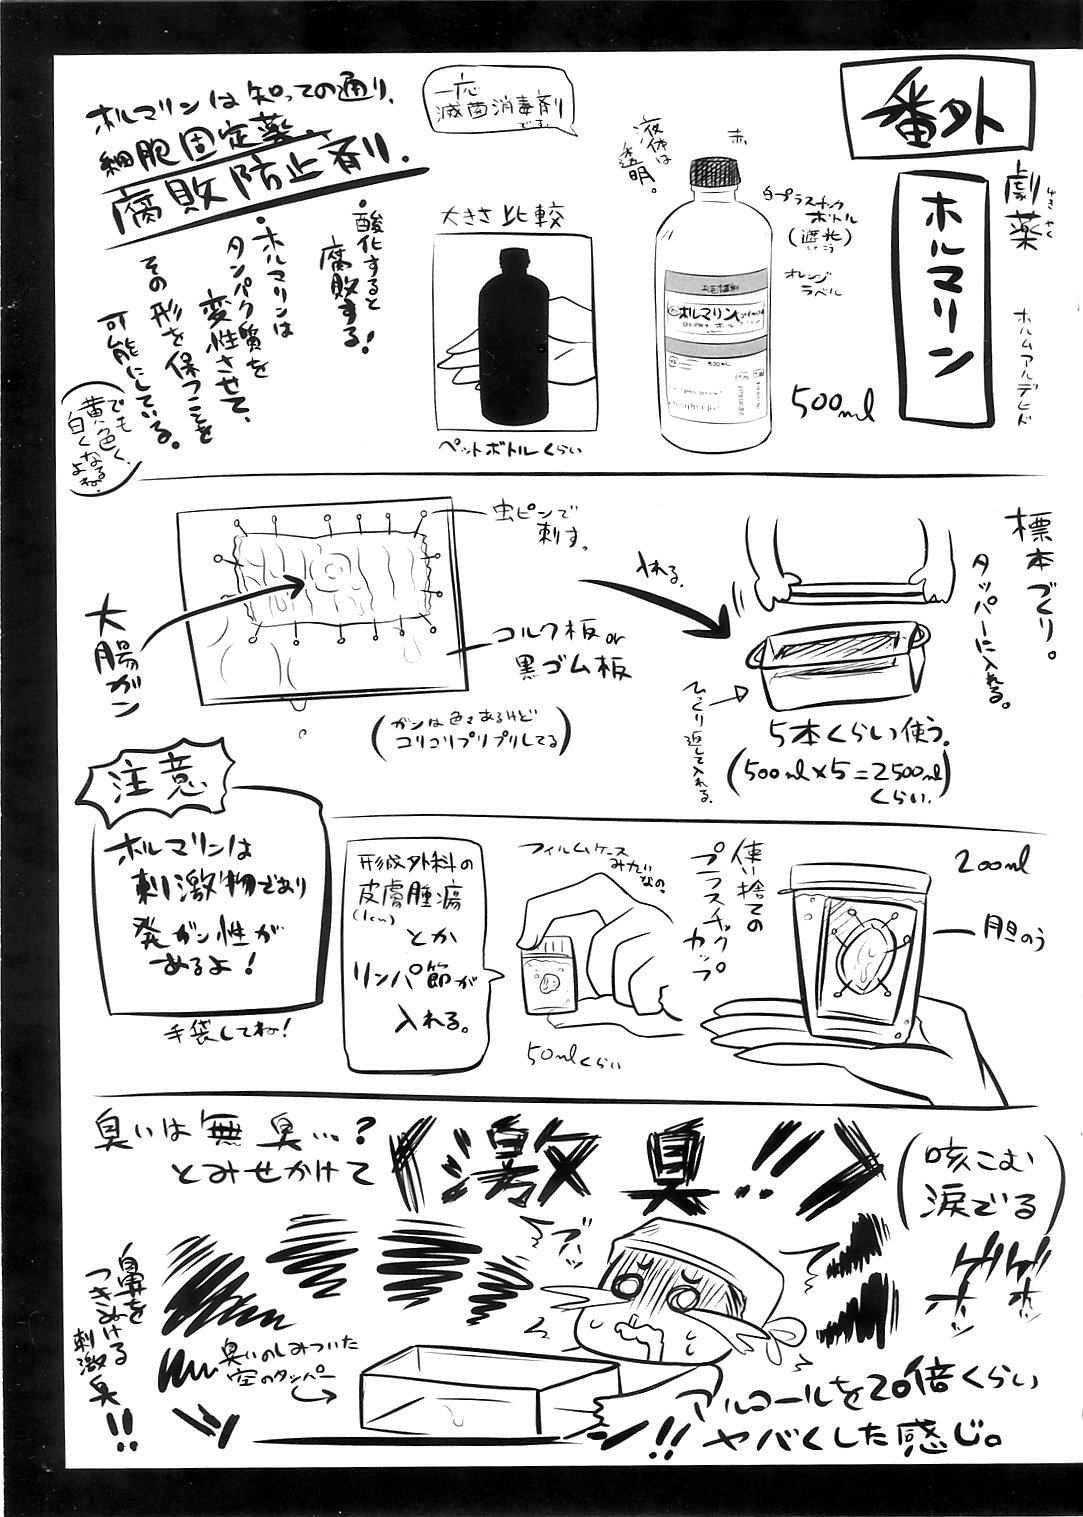 番外
劇薬
ゲキヤク
ホルマリン
ホルムアルデヒド
赤
液体は
透明。
白プラスチック
ボトル
(遮光)
しゃこう
オレンジ
ラベル
ホルマリン
500mL
500ml
一応
滅菌消毒剤
です。
大きさ比較
ペットボトルくらい
ホルマリンは知っての通り、
細胞固定薬
腐敗防止剤。
・酸化すると
腐敗する!
・ホルマリンは
タンパク質を
変性させて、
その形を保つことを
可能にしている。
でも
黄色く、
白くなる
よね。
標本づくり。
タッパーに入れる。
虫ピンで
刺す。
入れる。
大腸ガン
コルク板or
黒ゴム板
(ガンは色々あるけど
コリコリプリプリしてる)
ひっくり返して入れる。
5本くらい使う。
(500ml×5=2500ml)
くらい。
注意
ホルマリンは
刺激物であり
発ガン性が
あるよ!
手袋してね!
使い捨ての
プラスチック
カップ
200ml
胆のう
フィルムケース
みたいなの。
50mlくらい
形成外科の
皮膚腫瘍
(1cm)
とか
リンパ節が
入れる。
臭いは無臭…?
とみせかけて
激臭!!
(咳こむ
涙でる)
ゲホッ
ゲホッ
ブッ
鼻を
つきぬける
刺激臭!!
臭いのしみついた
空のタッパー
アルコールを20倍くらい
ヤバくした感じ。